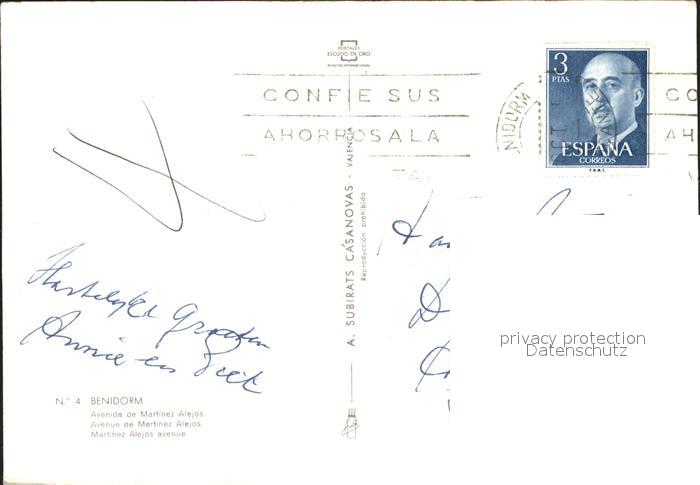 POSTALES
ESCUDO DE ORO
CONFIE SUS
AHORROS A LA
NIDORM
3
PTAS
ESPAÑA
CORREOS
F.N.M.T.
CO
AH
A. SUBIRATS CASANOVAS - VALENCIA
Reproducción prohibida
Hartelijke Groeten
Annie en Dick
privacy protection
Datenschutz
N.º 4 BENIDORM
Avenida de Martinez Alejos.
Avenue de Martinez Alejos.
Martinez Alejos avenue.